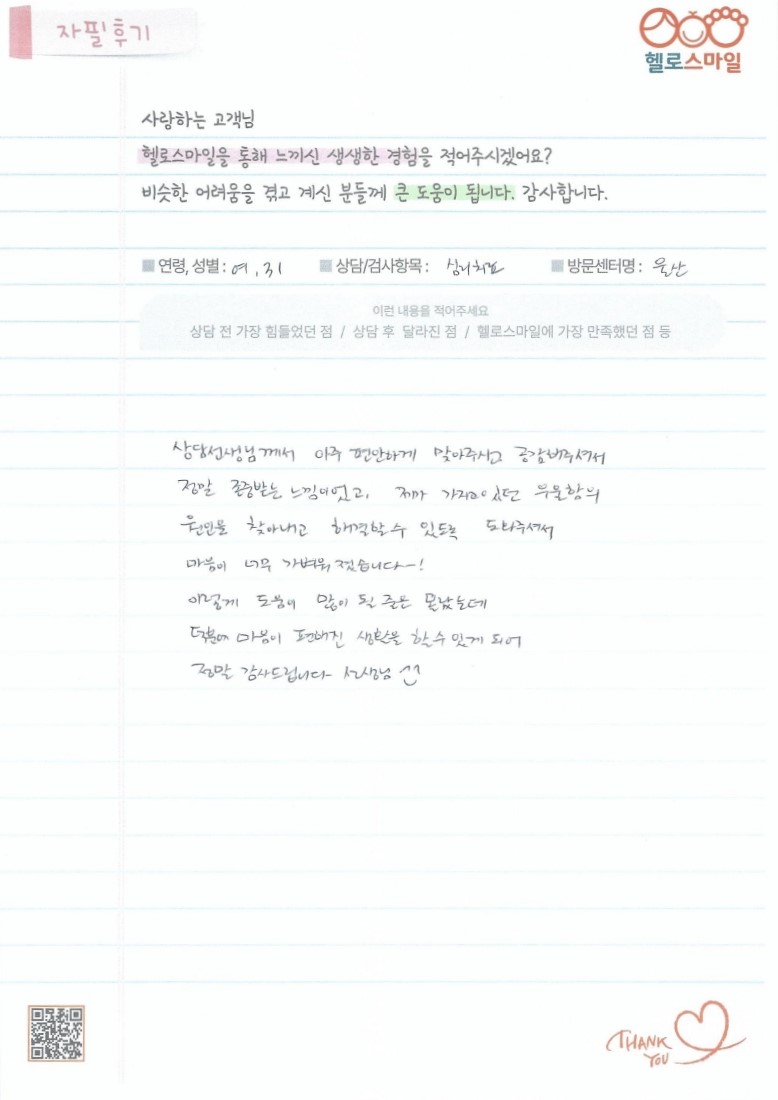 자필후기
헬로스마일
사랑하는 고객님
헬로스마일을 통해 느끼신 생생한 경험을 적어주시겠어요?
비슷한 어려움을 겪고 계신 분들께 큰 도움이 됩니다. 감사합니다.
■ 연령, 성별 : 여, 31 ■ 상담/검사항목 : 심리치료 ■ 방문센터명 : 울산
이런 내용을 적어주세요
상담 전 가장 힘들었던 점 / 상담 후 달라진 점 / 헬로스마일에 가장 만족했던 점 등
상담선생님께서 아주 편안하게 맞아주시고 공감해주셔서
정말 존중받는 느낌이었고, 제가 가지고 있던 우울함의
원인을 찾아내고 해결할 수 있도록 도와주셔서
마음이 너무 가벼워 졌습니다~!
이렇게 도움이 많이 될 줄은 몰랐는데
덕분에 마음이 편해진 생활을 할 수 있게 되어
정말 감사드립니다 선생님 ^^
THANK YOU